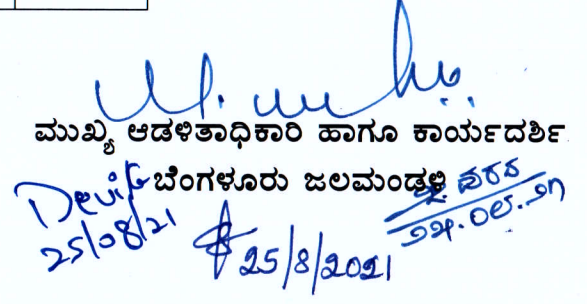 ಮುಖ್ಯ ಆಡಳಿತಾಧಿಕಾರಿ ಹಾಗೂ ಕಾರ್ಯದರ್ಶಿ
ಬೆಂಗಳೂರು ಜಲಮಂಡಳಿ
25/08/21
25/8/2021
೨೫.೦೮.೨೧